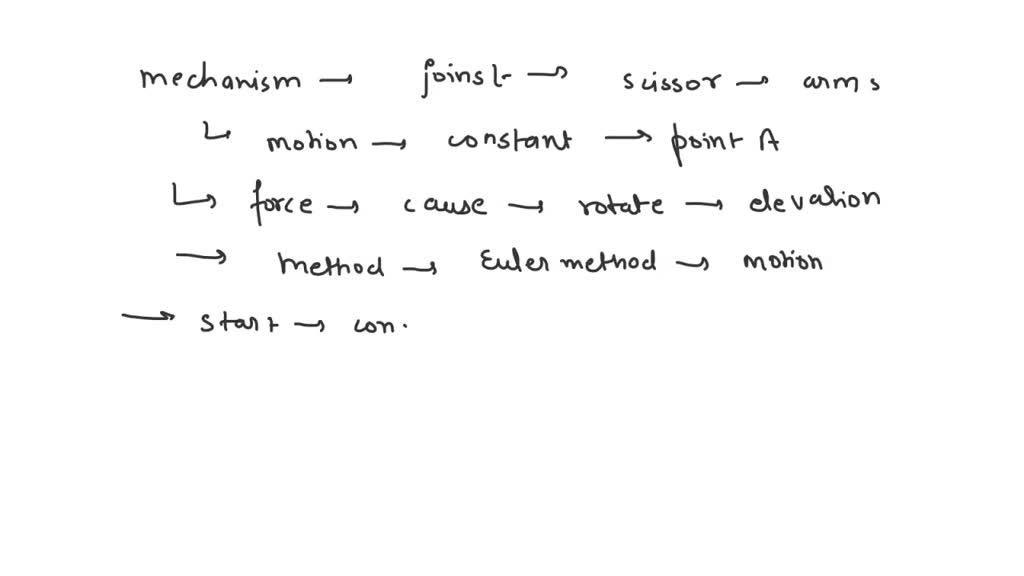 mechanism → joinst → scissor → arms
↳ motion → constant → point A
↳ force → cause → rotate → elevation
→ method → Euler method → motion
→ start → con.